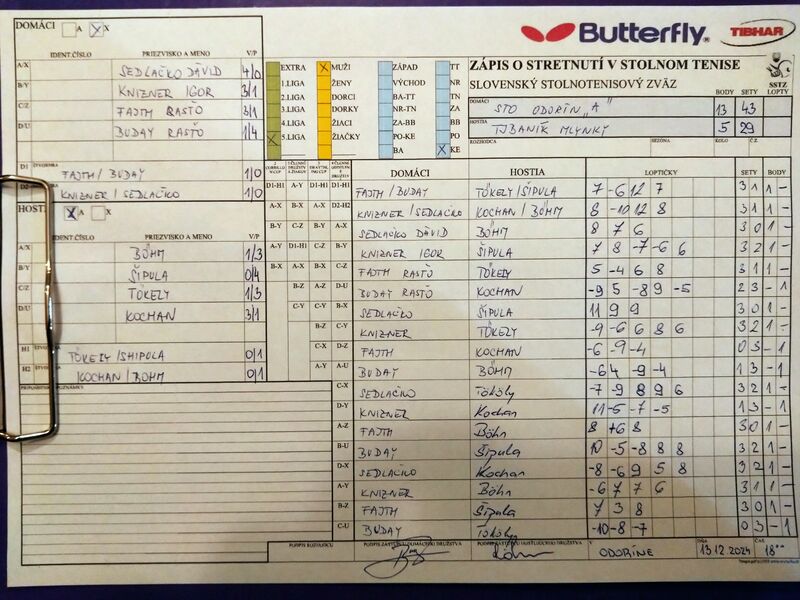 DOMÁCI A X
Butterfly
TIBHAR
IDENT.ČÍSLO PRIEZVISKO A MENO V/P
A/X SEDLAČKO DÁVID 4/0
B/Y KNIZNER IGOR 3/1
C/Z FAJTH RASŤO 3/1
D/U BUDAY RASŤO 1/4
D1 FAJTH/BUDAY 1/0
KNIZNER/SEDLAČKO 1/0
EXTRA X MUŽI ZÁPAD TT
1.LIGA ŽENY VÝCHOD NR
2.LIGA DORCI BA-TT TN
3.LIGA DORKY NR-TN ZA
4.LIGA ŽIACI ZA-BB BB
X 5.LIGA ŽIAČKY PO-KE PO
BA X KE
ZÁPIS O STRETNUTÍ V STOLNOM TENISE
SLOVENSKÝ STOLNOTENISOVÝ ZVÄZ
SSTZ
BODY SETY LOPTY
DOMÁCI STO ODORÍN „A" 13 43
HOSTIA TJ BANÍK MLYNKY 5 29
ROZHODCA SEZÓNA KOLO Č.Z.
HOSTIA X A X
IDENT.ČÍSLO PRIEZVISKO A MENO V/P
A/X BÖHM 1/3
B/Y ŠIPULA 0/4
C/Z TÖKELY 1/3
D/U KOCHAN 3/1
H1 TÖKELY/SHIPULA 0/1
H2 KOCHAN/BÖHM 0/1
DOMÁCI HOSTIA LOPTIČKY SETY BODY
D1-H1 FAJTH/BUDAY TÖKELY/ŠIPULA 7 -6 12 7 3 1 1 -
KNIZNER/SEDLAČKO KOCHAN/BÖHM 8 -10 12 8 3 1 1 -
SEDLAČKO DÁVID BÖHM 8 7 6 3 0 1 -
KNIZNER IGOR ŠIPULA 7 8 -7 -6 6 3 2 1 -
FAJTH RASŤO TÖKELY 5 -4 6 8 3 1 1 -
BUDAY RASŤO KOCHAN -9 5 -8 9 -5 2 3 - 1
SEDLAČKO ŠIPULA 11 9 9 3 0 1 -
KNIZNER TÖKELY -9 -6 6 8 6 3 2 1 -
FAJTH KOCHAN -6 -9 -4 0 3 - 1
BUDAY BÖHM -6 4 -9 -4 1 3 - 1
C-X SEDLAČKO Tököly -7 -9 8 9 6 3 2 1 -
D-Y KNIZNER Kochan 11 -5 -7 -5 1 3 - 1
A-Z FAJTH Böhn 8 +6 8 3 0 1 -
B-U BUDAY Šipula 10 -5 -8 8 8 3 2 1 -
D-X SEDLAČKO Kochan -8 -6 9 5 8 3 2 1 -
A-Y KNIZNER Böhn -6 7 7 6 3 1 1 -
B-Z FAJTH Šipula 7 3 8 3 0 1 -
C-U BUDAY Tököly -10 -8 -7 0 3 - 1
PODPIS ROZHODCU PODPIS ZÁSTUPCU DOMÁCEHO DRUŽSTVA PODPIS ZÁSTUPCU HOSŤUJÚCEHO DRUŽSTVA V ODORÍNE DŇA 13.12.2024 ČAS 18°°